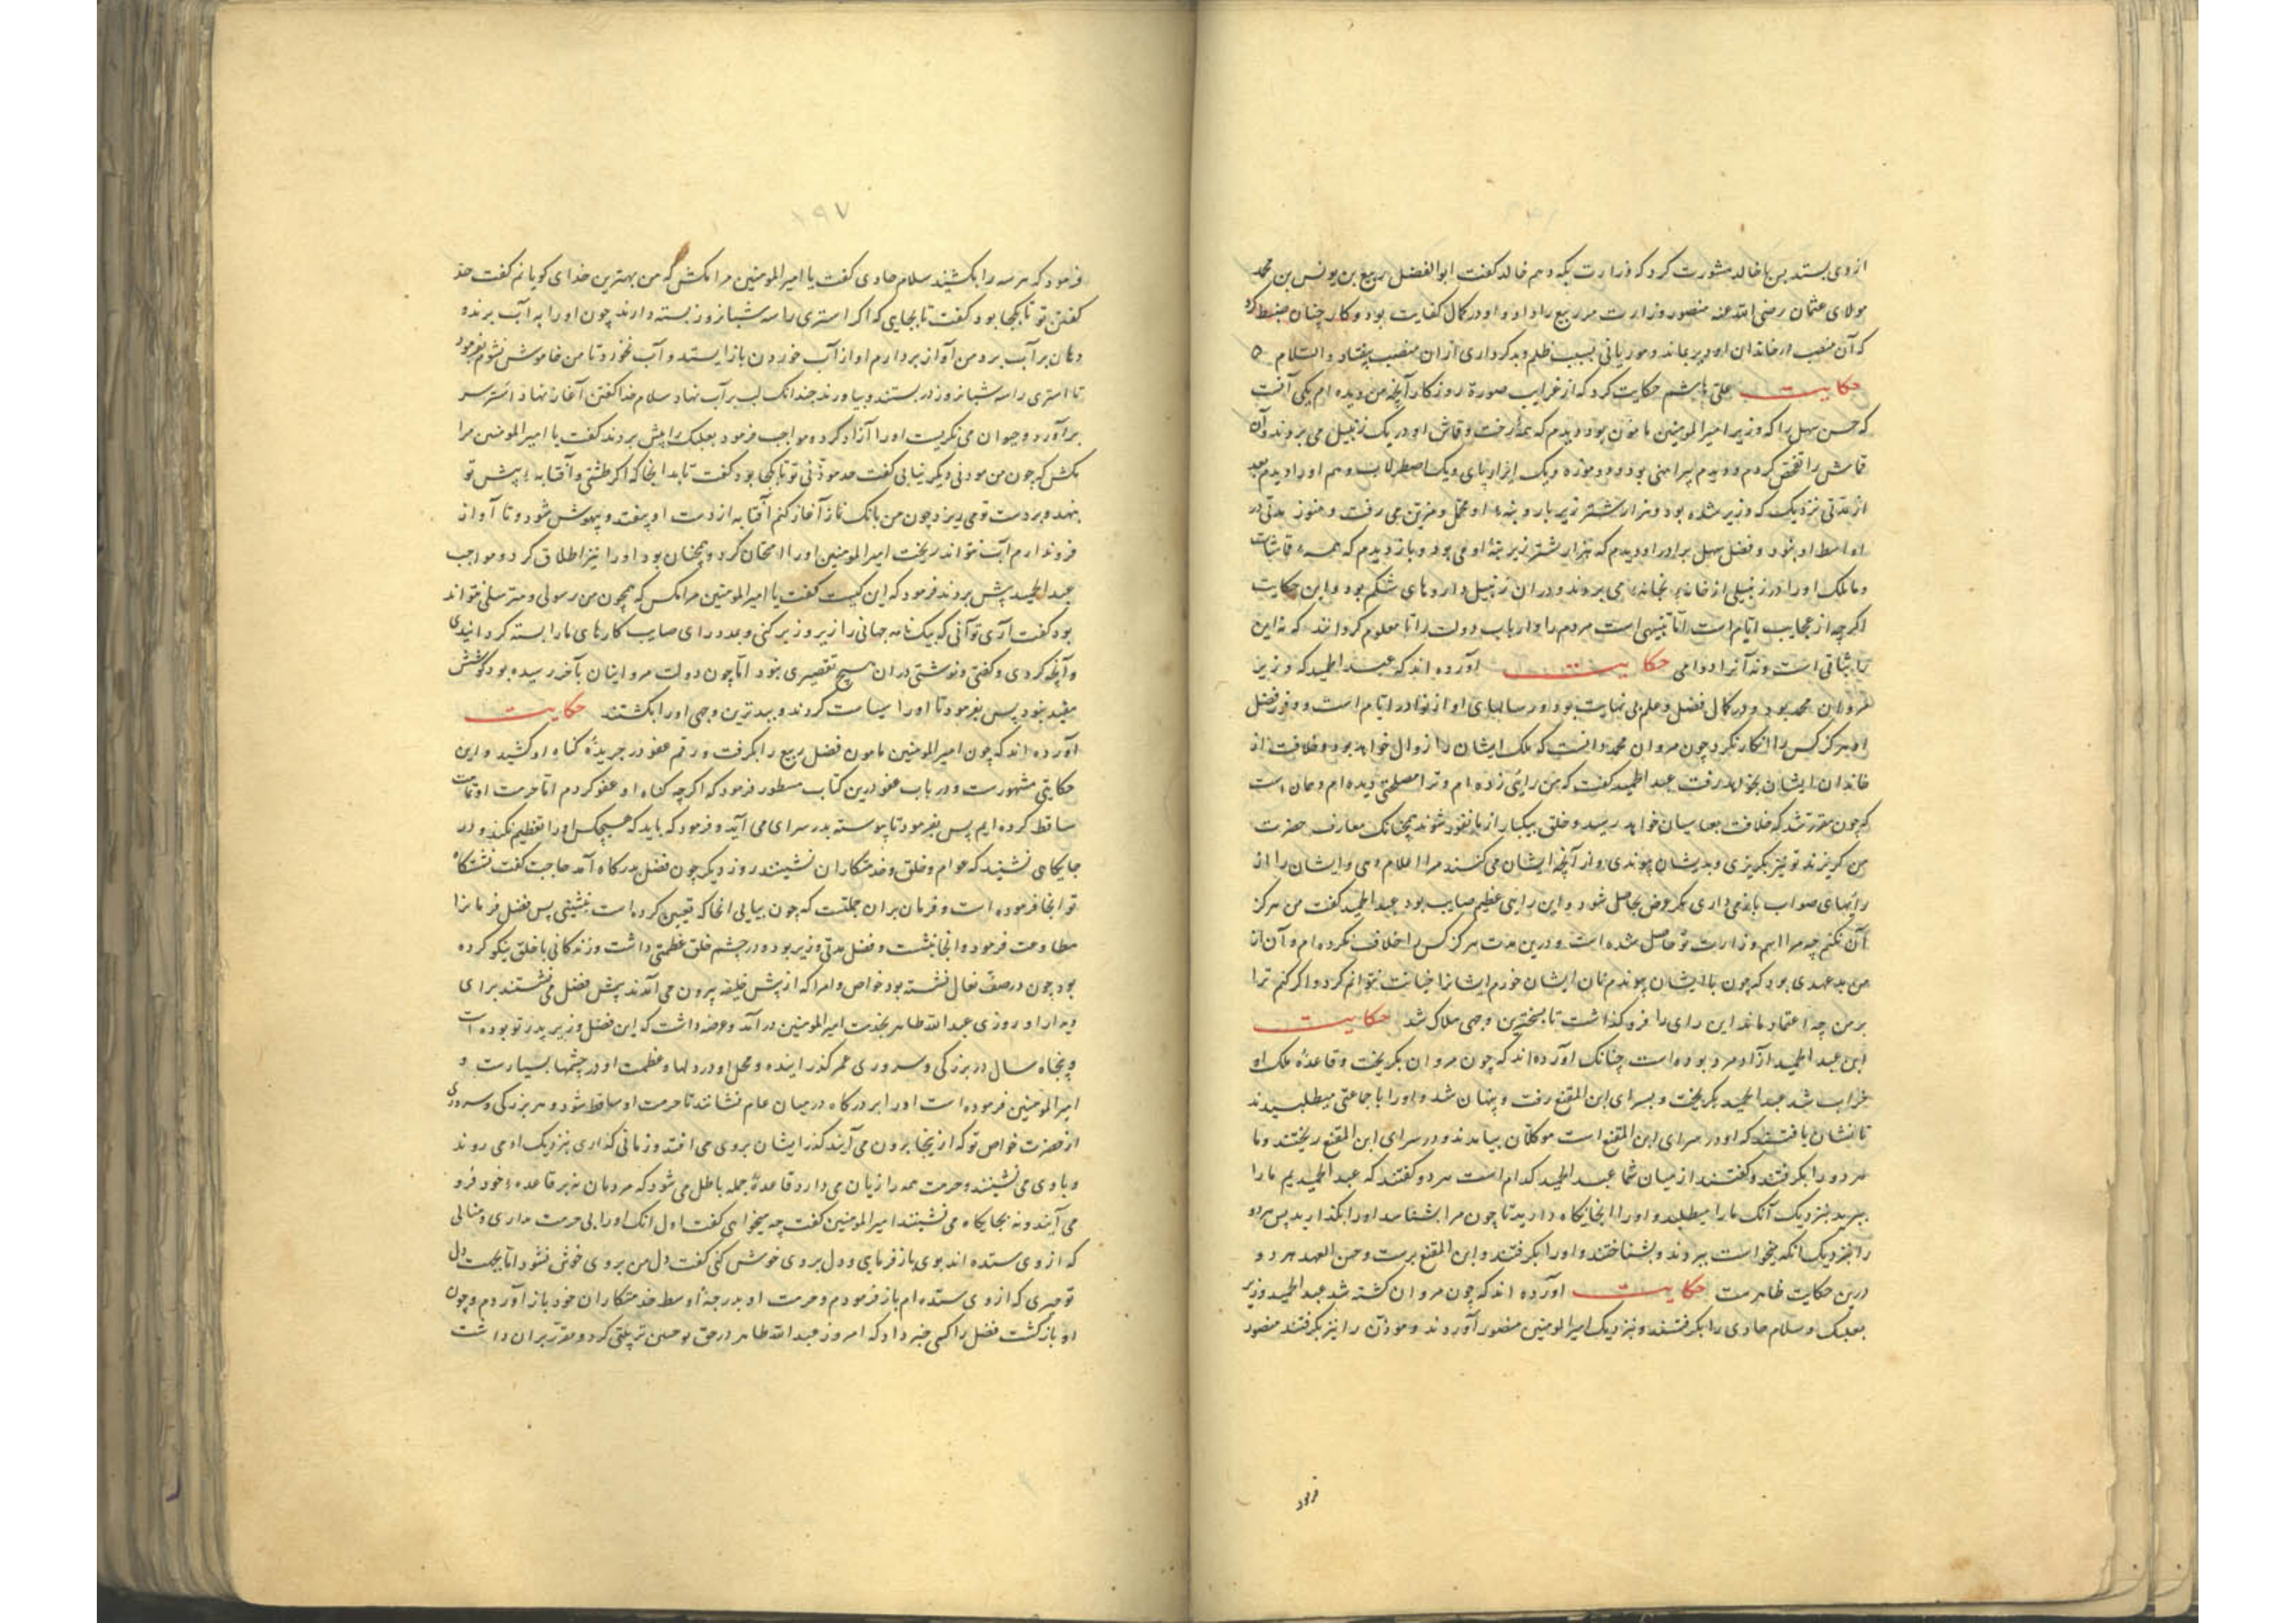 ازوی بستد پس با خالد مشورت کرد که وزارت بکه دهم خالد گفت ابوالفضل ربیع بن یونس بن محمد
مولای عثمان رضی الله عنه منصور وزارت مر ربیع را داد و او در کمال کفایت بود و کار چنان ضبط کرد
که آن منصب در خاندان او دیر بماند و موریانی بسبب ظلم و بدکرداری از ان منصب بیفتاد والسلام
حکایت علی هاشم حکایت کرد که از غرایب صورة روزکار آنچه من دیده ام یکی آنست
که حسن سهل را که وزیر امیرالمومنین مامون بود دیدم که همه رخت و قماش او در یک زنبیل می بردند و آن
قماش را تفحص کردم و دیدم پیراهنی بود و دو موزه و یک ازار پای و یک اصطرلاب و هم او را دیدم بعد
از مدتی نزدیک که وزیر شده بود و هزار شتر زیر بار و بنه او محمل و مزین می رفت و هنوز مدتی در
اواسط او شود و فضل سهل برادر او دیدم که هزار شتر زیر بنه او می بود و باز دیدم که همه قماشات
و مالک او را در زنبیلی از خانه بخانه می بردند و در ان زنبیل داروهای شکم بود و این حکایت
اکرچه از عجایب ایام است اما تنبیهی است مردم را و ارباب دولت را تا معلوم کردانند که نه این
را ثباتی است و نه آنرا دوامی حکایت آورده اند که عبد الحمید که وزیر
مروان محمد بود و در کمال فضل و علم بی نهایت بود و رسالهای او از نوادر ایام است و وفور فضل
او هرکز کس را انکار نکرد چون مروان محمد دانست که ملک ایشان را زوال خواهد بود و خلافت از
خاندان ایشان بخواهد رفت عبد الحمید گفت که من رایی زده ام و ترا مصلحتی دیده ام و همان است
که چون مقرر شد که خلافت بعباسیان خواهد رسید و خلق بیکبار از ما نفور شوند همچنانک معارف حضرت
من کریزند تو نیز بکریزی و بدیشان پیوندی و از آنچه ایشان می کنند مرا اعلام دهی و ایشان را از
رایهای صواب باز می داری مکر غرض بحاصل شود و این رایی عظیم صایب بود عبد الحمید گفت من هرکز
آن نکنم چه مرا اسم وزارت تو حاصل شده است و درین مدت هرکز کس را خلاف نکرده ام و آن از
من بد عهدی بود که چون با ایشان پیوندم نان ایشان خورم ایشانرا خیانت نتوانم کرد و اکر کنم ترا
بر من چه اعتماد ماند این رای را فرو کذاشت تا بسختترین وجهی هلاک شد حکایت
این عبد الحمید آزاد مرد بوده است چنانک آورده اند که چون مروان بکریخت و قاعده ملک او
خراب شد عبد الحمید بکریخت و بسرای ابن المقفع رفت و پنهان شد و او را با جماعتی میطلبیدند
تا نشان یافتند که او در سرای ابن المقفع است موکلان بیامدند و در سرای ابن المقفع ریختند و ما
هر دو را بکرفتند و گفتند از میان شما عبد الحمید کدام است هر دو گفتند که عبد الحمیدیم ما را
ببرید بنزدیک آنک ما را میطلبد و او را اینجا نکاه دارید تا چون مرا بشناسد او را بکذارید پس هر دو
را بنزدیک انکه میخواست ببردند و بشناختند و او را بکرفتند و ابن المقفع برست و حسن العهد هر دو
درین حکایت ظاهرست حکایت آورده اند که چون مروان کشته شد عبد الحمید وزیر
بعلبک و سلام حادی را بکرفتند و بنزدیک امیرالمومنین منصور آوردند و موذن را نیز بکرفتند منصور
فرمود
۱۹۷
فرمود که هر سه را بکشند سلام حادی گفت یا امیرالمومنین مرا مکش که من بهترین حدای کویانم گفت حد
گفتن تو تا بکجا بود گفت تا بجایی که اکر استری را سه شبانروز بسته دارند چون او را به آب برند و
دهان بر آب برد من آواز بردارم او از آب خوردن باز ایستد و آب نخورد تا من خاموش نشوم بفرمود
تا استری را سه شبانروز در بستند و بیاوردند چندانک لب بر آب نهاد سلام حدا گفتن آغاز نهاد استر سر
برآورد و حیوان می نکریست او را آزاد کرد و مواجب فرمود بعلبک را پیش بردند گفت یا امیرالمومنین مرا
مکش که چون من موذنی دیکر نیابی گفت حد موذنی تو تا کجا بود گفت تا بدانجا که اکر طشتی و آفتابه پیش تو
بنهند و بر دست تو می ریزد چون من بانک نماز آغاز کنم آفتابه از دست او بیفتد و بیهوش شود و تا آواز
فرو ندارم آب نتواند ریخت امیرالمومنین او را امتحان کرد و همچنان بود او را نیز اطلاق کرد و مواجب
عبد الحمید پیش بردند فرمود که این کیست گفت یا امیرالمومنین مرا مکش که همچون من رسولی و مترسلی نتواند
بود گفت آری تو آنی که بیک نامه جهانی را زیر و زبر کنی و بدو رای صایب کارهای ما را بسته کردانیدی
و آنچه کردی و کفتی و نوشتی در ان هیچ تقصیری نبود اما چون دولت مروانیان بآخر رسیده بود کوشش
مفید نبود پس بفرمود تا او را سیاست کردند و ببدترین وجهی او را بکشتند حکایت
آورده اند که چون امیرالمومنین مامون فضل ربیع را بکرفت و رقم عفو در جریدۀ کناه او کشید و این
حکایتی مشهورست و در باب عفو درین کتاب مسطور فرمود که اکرچه کناه او عفو کردم اما حرمت او تمامت
ساقط کرده ایم پس بفرمود تا پیوسته بدر سرای می آید و فرمود که باید که هیچکس او را تعظیم نکند و در
جایکاهی نشیند که عوام و خلق و خدمتکاران نشینند روز دیکر چون فضل بدرکاه آمد حاجب گفت نشستکاه
تو اینجا فرموده است و فرمان بران جملتست که چون بیایی انجا که تعیین کرده است بنشینی پس فضل فرمانرا
مطاوعت فرمود و انجا بنشست و فضل مدتی وزیر بود و در چشم خلق عظمتی داشت و زندکانی با خلق نیکو کرده
بود چون در صف نعال نشسته بود خواص و امرا که از پیش خلیفه بیرون می آمدند پیش فضل می نشستند برای
دیدار او روزی عبد الله طاهر بخدمت امیرالمومنین درآمد و عرضه داشت که این فضل وزیر پدر تو بوده است
و پنجاه سال در بزرکی و سروری عمر کذرانیده و محل او در دلها و عظمت او در چشمها بسیارست و
امیرالمومنین فرموده است او را بر درکاه در میان عام نشانند تا حرمت او ساقط شود و هر بزرکی و سروری
از حضرت خواص تو که از ینجا بیرون می آیند کذر ایشان بر وی می افتد و زمانی کذاری بنزدیک او می روند
و با وی می نشینند و حرمت همه را زیان می دارد و قاعدۀ جمله باطل می شود که مردمان نه بر قاعده خود فرو
می آیند و نه بجایکاه می نشینند امیرالمومنین گفت چه میخواهی گفت اول انک او را بی حرمت نداری و منالی
که از وی ستده اند بوی باز فرمایی و دل بر وی خوش کنی گفت دل من بر وی خوش نشود اما بجهت دل
تو چیزی که از وی ستده ام باز فرمودم و حرمت او بدرجۀ اوسط خدمتکاران خود باز آوردم و چون
او بازکشت فضل را کسی خبر داد که امروز عبد الله طاهر در حق تو حسن تربیتی کرد و مقرر بران داشت